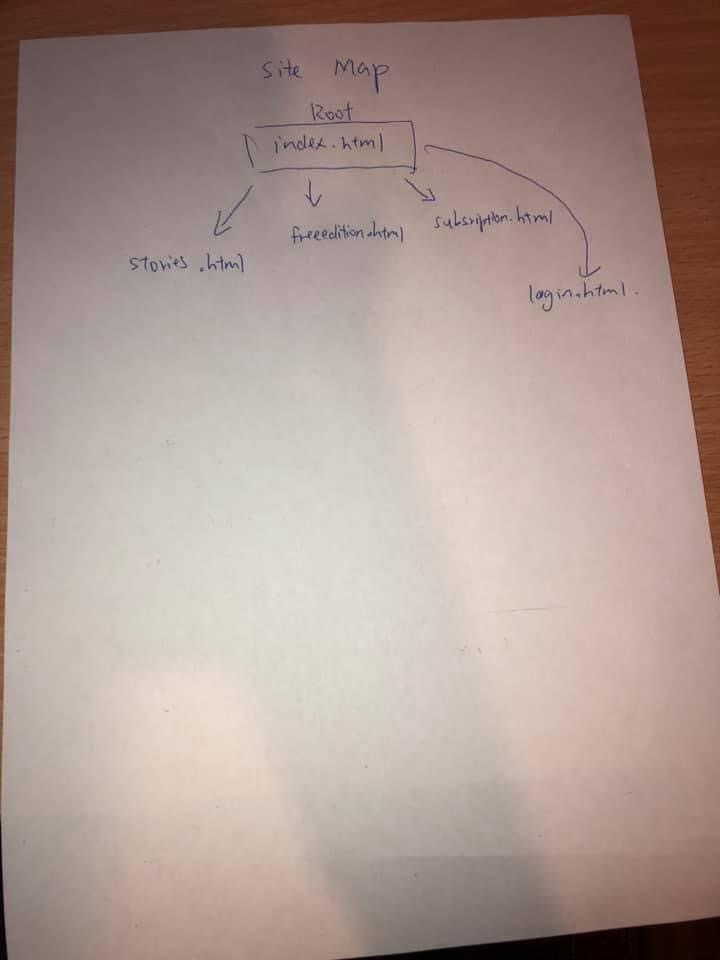 Site Map
Root
index.html
stories.html
freeedition.html
subsription.html
login.html.